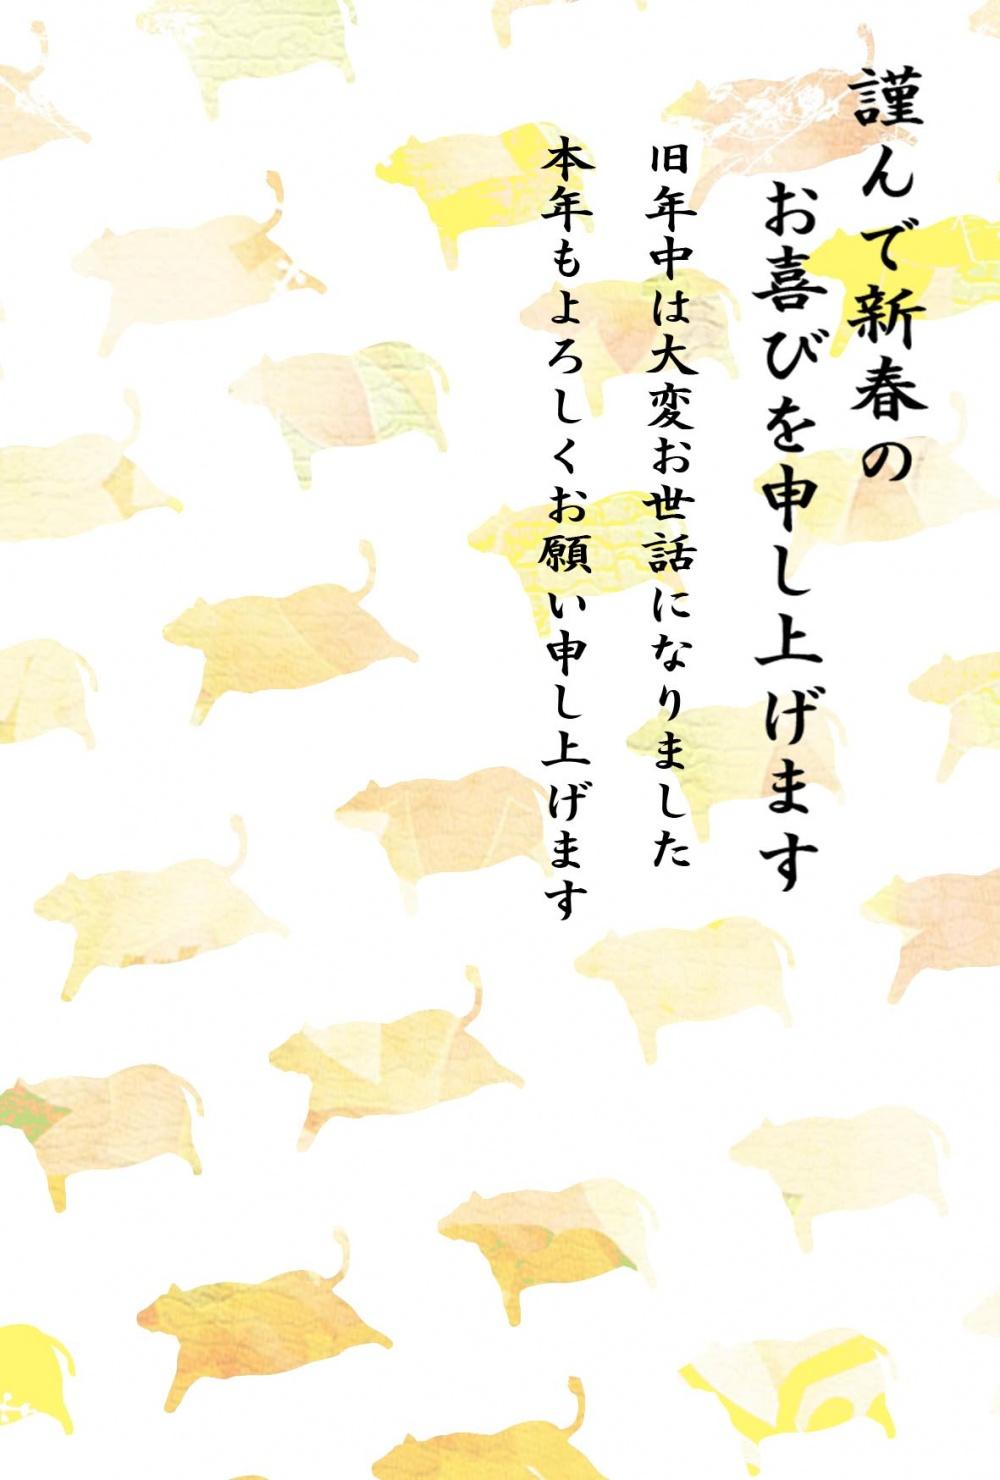 謹んで新春の
お喜びを申し上げます
旧年中は大変お世話になりました
本年もよろしくお願い申し上げます